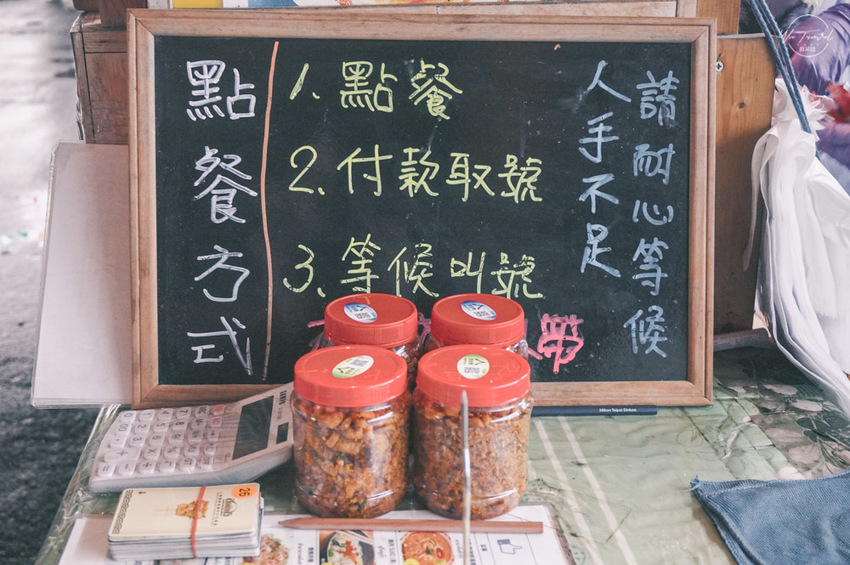 點餐方式
1. 點餐
2. 付款取號
3. 等候叫號
帶
請耐心等候
人手不足
26
Hilton Taipei Sinban